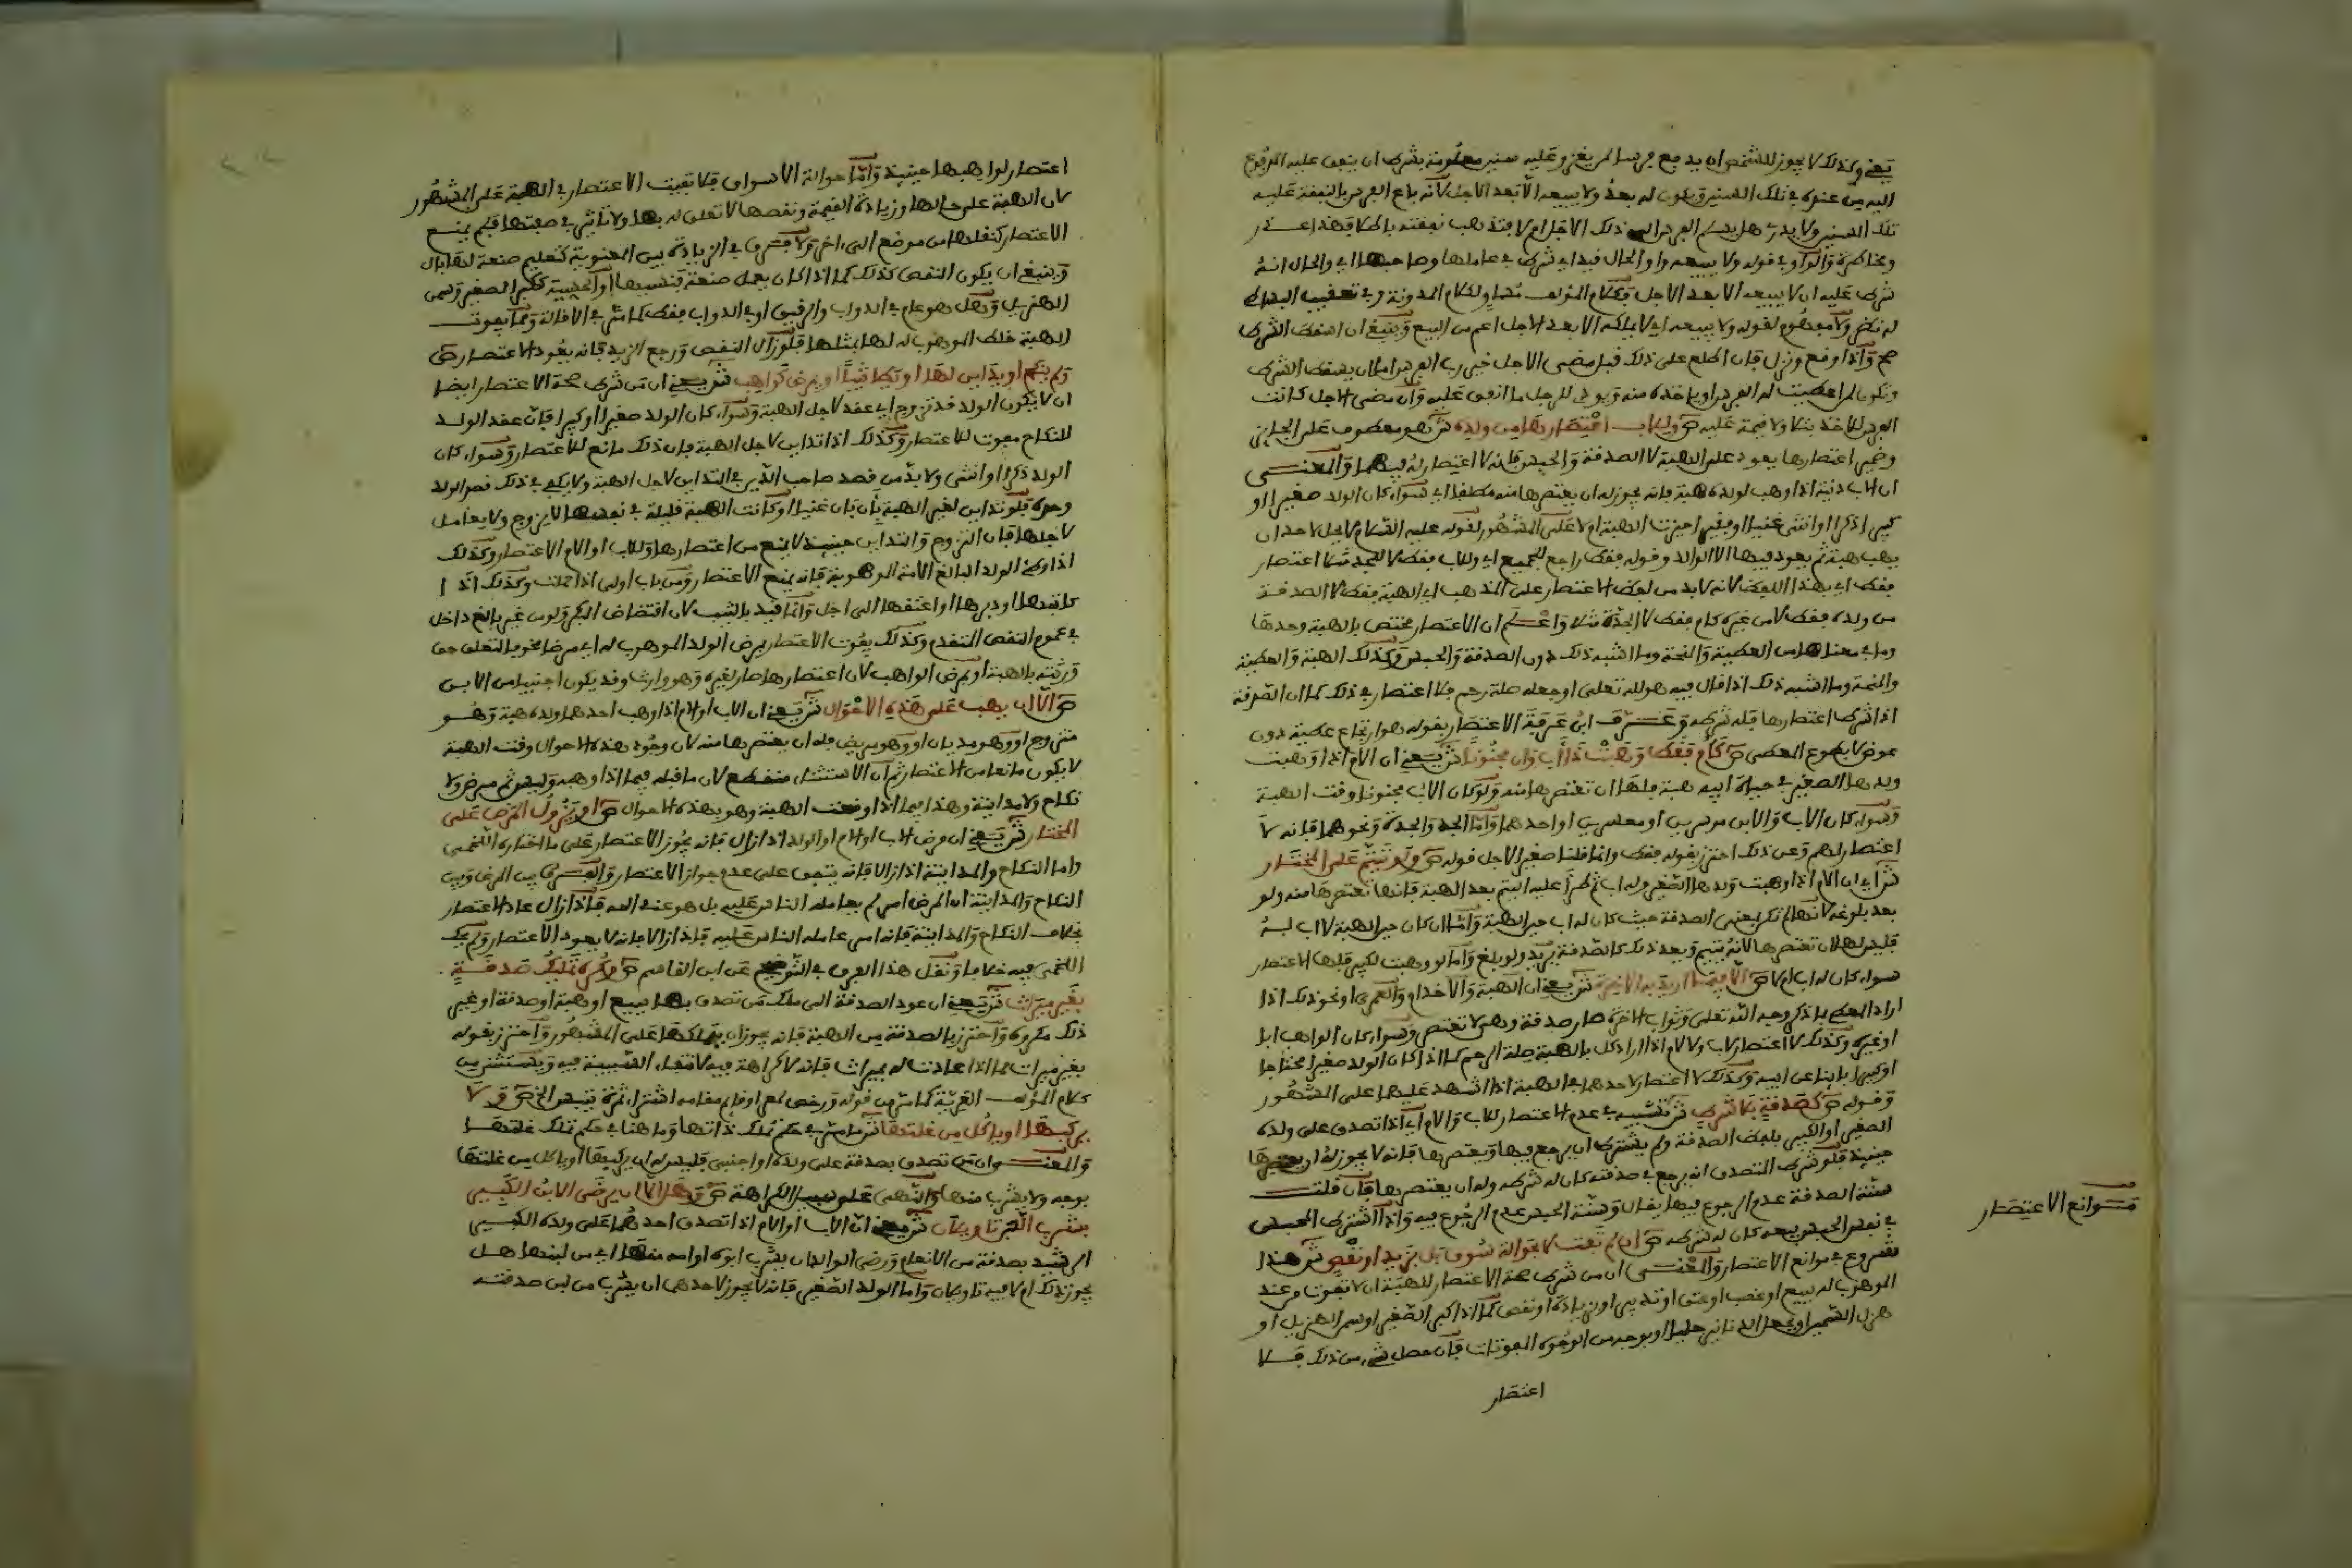 يعني وكذلك لا يجوز للشخص أن يدفع فرسا لمن يغزو عليه سنين معلومة بشرط أن ينفق عليه المدفوع
إليه من عنده في تلك السنين ويكون له بعد ولا يبيعه إلا بعد الأجل لأنه باع الفرس بالنفقة عليه
تلك السنين ولا يدري هل يسلم الفرس إلى ذلك الأجل أم لا فتذهب نفقته باطلا فهذا غرر
ومخاطرة والواو في قوله ولا يبيعه واو الحال
شرط عليه أن لا يبيعه إلا بعد الأجل فكلام المؤلف مساو لكلام المدونة وفي تعقب البساطي
له نظر ولا مفهوم لقوله ولا يبيعه أي لا يملكه إلا بعد الأجل أعم من البيع وينبغي إن أسقط الشرط
صح وإذا وقع ونزل فإن اطلع على ذلك قبل مضي الأجل خير رب الفرس إما أن يسقط الشرط
وتكون لمن أعطيت له الفرس أو يأخذه منه ويؤدي للرجل ما أنفق عليه وإن مضى الأجل كانت
الفرس للآخذ بتلا ولا قيمة عليه ص وللأب اعتصارها من ولده ش هو معطوف على
وضمير اعتصارها يعود على الهبة لا الصدقة والحبس فإنه لا اعتصار له فيهما والمعنى
أن الأب دنية إذا وهب لولده هبة فإنه يجوز له أن يعتصرها منه مطلقا أي سواء كان الولد صغيرا أو
كبيرا ذكرا أو أنثى غنيا أو فقيرا حيزت الهبة أم لا على المشهور لقوله عليه السلام لا يحل لأحد أن
يهب هبة ثم يعود فيها إلا الوالد وقوله فقط راجع للجميع أي وللأب فقط لا للجد مثلا اعتصار
فقط أي بهذا اللفظ لأنه لا بد من لفظ الاعتصار على المذهب أي الهبة فقط لا الصدقة
من ولده فقط لا من غيره كأم فقط لا الجدة مثلا واعلم أن الاعتصار مختص بالهبة وحدها
وما في معناها من العطية والنحلة وما أشبه ذلك دون الصدقة والحبس وكذلك الهبة والعطية
والمنحة وما أشبه ذلك إذا قال فيه هو لله تعالى أو جعله صلة رحم فلا اعتصار في ذلك كما أن الصدقة
إذا شرط اعتصارها فله شرطه وعرف ابن عرفة الاعتصار بقوله هو ارتجاع عطية دون
عوض لا بطوع المعطي ص كأم فقط وهبت ذا أب وإن مجنونا ش يعني أن الأم إذا وهبت
ولدها الصغير في حياة أبيه هبة فلها أن تعتصرها منه ولو كان الأب مجنونا وقت الهبة
وسواء كان الأب والابن موسرين أو معسرين أو أحدهما وأما الجد والجدة ونحوهما فإنه لا
اعتصار لهم وعن ذلك احترز بقوله فقط وإنما قلنا صغير لأجل قوله ص ولو تيتم على المختار
ش أي أن الأم إذا وهبت ولدها الصغير وله أب ثم طرأ عليه اليتم بعد الهبة فإنها تعتصرها منه ولو
بعد بلوغه لأنها لم تكن بمعنى الصدقة حيث كان له أب حين الهبة وأما إن كان حين الهبة لا أب له
فليس لها أن تعتصرها لأنه يتيم وبعد ذلك كالصدقة يريد ولو بلغ وأما لو وهبت لكبير فلها الاعتصار
سواء كان له أب أم لا ص إلا فيما أريد به الآخرة ش يعني أن الهبة والإخدام والعمرى ونحو ذلك إذا
أراد المعطي بذكر وجه الله تعالى وثواب الآخرة صار صدقة وهي لا تعتصر وسواء كان الواهب أبا
أو غيره وكذلك لا اعتصار لأب ولا لأم إذا أراد كل بالهبة صلة الرحم كما إذا كان الولد صغيرا محتاجا
أو كبيرا بائنا عن أبيه وكذلك لا اعتصار لأحدهما في الهبة إذا أشهد عليها على المشهور
وقوله ص كصدقة بلا شرط ش تشبيه في عدم الاعتصار للأب والأم أي إذا تصدق على ولده
الصغير أو الكبير بلفظ الصدقة ولم يشترط أن يرجع فيها ويعتصرها فإنه لا يجوز له أن يعتصرها
حينئذ فلو شرط المتصدق أنه يرجع في صدقته كان له شرطه وله أن يعتصرها فإن قلت
سنة الصدقة عدم الرجوع فيها يقال وسنة الحبس عدم الرجوع فيه وإذا اشترط المحبس
في نفس الحبس بيعه كان له شرطه ص إن لم تفت لا بحوالة سوق بل بزيد أو نقص ش هذا
شروع في موانع الاعتصار والمعنى أن من شرط صحة الاعتصار للهبة أن لا تفوت من عند
الموهوب له ببيع أو غصب أو عتق أو تدبير أو زيادة أو نقص كما إذا كبر الصغير أو سمن الهزيل أو
هزل السمين أو يجعل الدنانير حليا أو بوجه من الوجوه المفوتات فإن حصل شيء من ذلك فلا
اعتصار
موانع الاعتصار
اعتصار لواهبها حينئذ وأما حوالة الأسواق فلا تفيت الاعتصار في الهبة على المشهور
لأن الهبة على حالها وزيادة القيمة ونقصها لا تعلق له بها ولا تأثير في صفتها فلم يمنع
الاعتصار كنقلها من موضع إلى آخر ولا فرق في الزيادة بين المعنوية كتعليم صنعة لها بال
وينبغي أن يكون النقص كذلك كما إذا كان يعمل صنعة فنسيها أو الحسية ككبر الصغير وسمن
الهزيل وهل هو عام في الدواب والرقيق أو في الدواب فقط كما مر في الإقالة ومما يفوت
الهبة خلط الموهوب له لها بمثلها فلو زال النقص ورجع الزيد فإنه يعود الاعتصار ص
ولم ينكح أو يداين لها أو يطأ ثيبا أو يمرض كواهب ش يعني أن من شرط صحة الاعتصار أيضا
أن لا يكون الولد قد تزوج أي عقد لأجل الهبة وسواء كان الولد صغيرا أو كبيرا فإن عقد الولد
للنكاح مفوت للاعتصار وكذلك إذا تداين لأجل الهبة فإن ذلك مانع للاعتصار وسواء كان
الولد ذكرا أو أنثى ولا بد من قصد صاحب الدين في التداين لأجل الهبة ولا يكفي في ذلك قصد الولد
وحده فلو تداين لغير الهبة بأن كان غنيا أو كانت الهبة قليلة في نفسها لا يزوج ولا يعامل
لأجلها فإن التزوج والتداين حينئذ لا يمنع من اعتصارها وللأب أو الأم الاعتصار وكذلك
إذا وطئ الولد البالغ الأمة الموهوبة فإنه يمنع الاعتصار ومن باب أولى إذا حملت وكذلك إذا
كاتبها أو دبرها أو أعتقها إلى أجل وإنما قيد بالثيب لأن افتضاض البكر ولو من غير بالغ داخل
في عموم النقص المتقدم وكذلك يفوت الاعتصار بمرض الولد الموهوب له أي مرضا مخوفا لتعلق حق
ورثته بالهبة أو بمرض الواهب لأن اعتصارها صار لغيره وهو وارث وقد يكون أجنبيا من الابن
ص إلا أن يهب على هذه الأحوال ش يعني أن الأب أو الأم إذا وهب أحدهما ولده هبة وهو
متزوج أو وهو مديان أو وهو مريض فله أن يعتصرها منه لأن وجود هذه الأحوال وقت الهبة
لا يكون مانعا من الاعتصار ثم إن الاستثناء منقطع لأن ما قبله فيما إذا وهبه وليس ثم مرض ولا
نكاح ولا مداينة وهذا فيما إذا وقعت الهبة وهو بهذه الأحوال ص أو يزول المرض على
المختار ش يعني أن مرض الأب أو الأم أو الولد إذا زال فإنه يجوز الاعتصار على ما اختاره اللخمي
وأما النكاح والمداينة إذا زالا فإنه يتفق على عدم جواز الاعتصار والفرق بين المرض وبين
النكاح والمداينة أن المرض أمر لم يعامله الناس عليه بل هو عند الله فإذا زال عاد الاعتصار
بخلاف النكاح والمداينة فإنه أمر عامله الناس عليه فإذا زالا فإنه لا يعود الاعتصار ولم يحك
اللخمي فيه خلافا ونقل هذا الفرق في التوضيح عن ابن القاسم ص وكره تملك صدقة
بغير ميراث ش يعني أن عود الصدقة إلى ملك من تصدق بها ببيع أو هبة أو صدقة أو غير
ذلك مكروه واحترز بالصدقة من الهبة فإنه يجوز أن يتملكها على المشهور واحترز بقوله
بغير ميراث مما إذا عادت له بميراث فإنه لا كراهة فيه لانتفاء التسبب فيه ويستثنى من
كلام المؤلف العرية كما مر من قوله ورخص لمعر أو قائم مقامه اشتراء ثمرة تيبس الخ ص ولا
يركبها أو يأكل من غلتها ش ما مر في حكم تملك ذاتها وما هنا في حكم تملك غلتها
والمعنى أن من تصدق بصدقة على ولده أو أجنبي فليس له أن يركبها أو يأكل من غلتها
بوجه ولا يشرب منها والنهي على سبيل الكراهة ص وهل إلا أن يرضى الابن الكبير
بشرب اللبن تأويلان ش يعني أن الأب أو الأم إذا تصدق أحدهما على ولده الكبير
الرشيد بصدقة من الأنعام ورضي الولد أن يشرب أبوه أو أمه منها أي من لبنها هل
يجوز ذلك أم لا فيه تأويلان وأما الولد الصغير فإنه لا يجوز لأحدهما أن يشرب من لبن صدقته